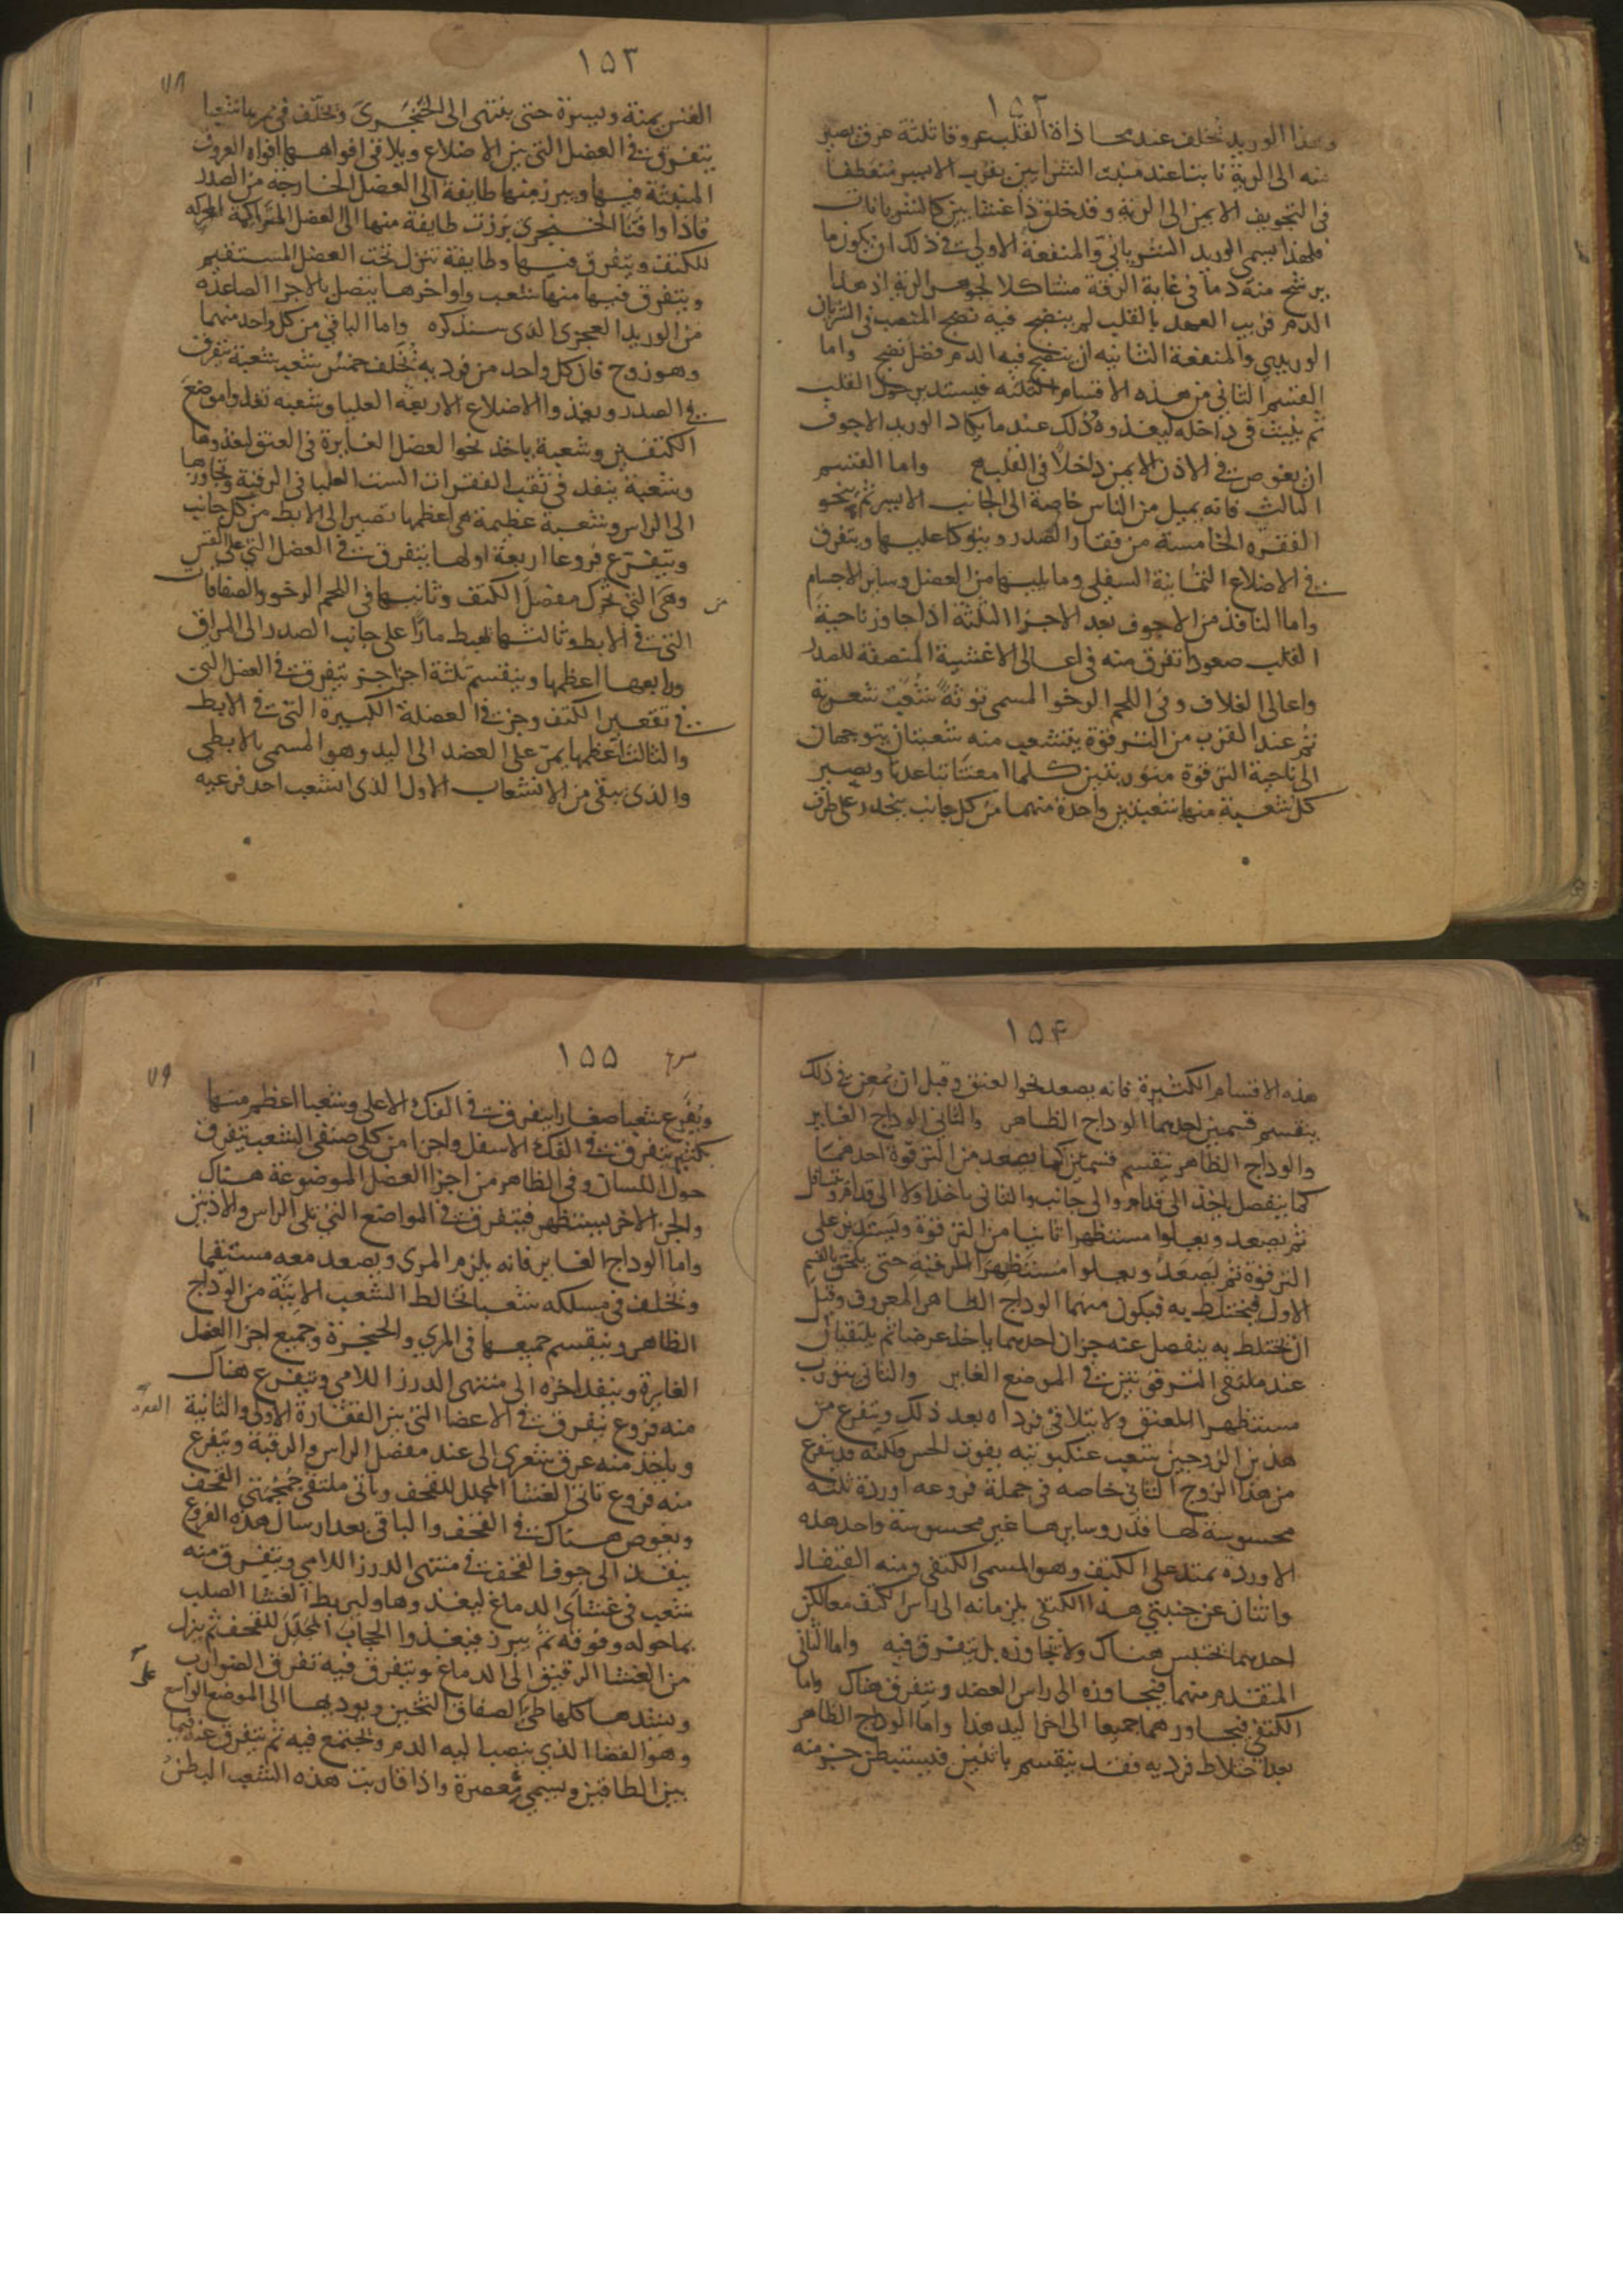 ١٥٢
وهذا الوريد تخلف عند محاذاة القلب عروقا ثلثة عرق يصير
منه الى الرية نابتا عند منبت الشرايين بقرب الايسر منعطفا
فى التجويف الايمن الى الرية وقد خلق ذا غشايين كالشريانات
فلهذا يسمى الوريد الشريانى والمنفعة الاولى فى ذلك ان يكون ما
يرشح منه دما فى غاية الرقة مشاكلا لجوهر الرية اذ هذا
الدم قريب العهد بالقلب لم ينضج فيه نضج المنصب فى الشريان
الوريدي والمنفعة الثانيه ان ينضج فيه الدم فضل نضج واما
القسم الثانى من هذه الاقسام الثلثه فيستدير حول القلب
ثم ينبث فى داخله ليغذوه وذلك عند ما يكاد الوريد الاجوف
ان يغوص فى الاذن الايمن داخلا فى القلب واما القسم
الثالث فانه يميل من الناس خاصة الى الجانب الايسر ثم ينحو
الفقره الخامسة من فقار الصدر ويتوكا عليها ويتفرق
فى الاضلاع الثمانية السفلى وما يليها من العضل وساير الاجسام
واما النافذ من الاجوف بعد الاجزا الثلثة اذا جاوز ناحية
القلب صعودا تفرق منه فى اعالى الاغشية المنصفة للصدر
واعالى الغلاف وفى اللحم الرخو المسمى توثة شعب شعرية
ثم عند القرب من الترقوة يتشعب منه شعبتان يتوجهان
الى ناحية الترقوة متوربتين كلما امعنتا تباعدتا ويصير
كل شعبة منها شعبتين واحدة منهما من كل جانب ينحدر على طرف
١٥٣
٧٨
القس يمنة ويسرة حتى ينتهى الى الخنجرى وتخلف فى ممرها شعبا
يتفرق فى العضل التى بين الاضلاع ويلاقى افواهها افواه العروق
المنبثة فيها ويبرز منها طايفة الى العضل الخارجة من الصدر
فاذا وافتا الخنجرى برزت طايفة منها الى العضل المتراكمة المحركه
للكتف ويتفرق فيها وطايفة تنزل تحت العضل المستقيم
ويتفرق فيها منها شعب واواخرها يتصل بالاجزا الصاعده
من الوريد العجزى الذى سنذكره واما الباقى من كل واحد منهما
وهو زوج فان كل واحد من فرديه تخلف خمس شعب شعبة يتفرق
فى الصدر ويغذوا الاضلاع الاربعة العليا وشعبه تغذوا موضع
الكتفين وشعبة ياخذ نحوا العضل الغايرة فى العنق ليغذوها
وشعبة ينفد فى ثقب الفقرات الست العليا فى الرقبة وتجاوزها
الى الراس وشعبة عظيمة هى اعظمها تصير الى الابط من كل جانب
ويتفرع فروعا اربعة اولها يتفرق فى العضل التى على القس
وهى التى تحرك مفصل الكتف وثانيها فى اللحم الرخو والصفاقات
التى فى الابط وثالثها تهبط مارا على جانب الصدر الى المراق
ورابعها اعظمها وينقسم ثلثة اجزا جز يتفرق فى العضل التى
فى تقعير الكتف وجز فى العضلة الكبيرة التى فى الابط
والثالث اعظمها يمر على العضد الى اليد وهو المسمى بالابطى
والذى يبقى من الانشعاب الاول الذى انشعب احد فرعيه
١٥٤
هذه الاقسام الكثيرة فانه يصعد نحوا العنق وقبل ان يمعن فى ذلك
ينقسم قسمين احدهما الوداج الظاهر والثانى الوداج الغاير
والوداج الظاهر ينقسم قسمين كما يصعد من الترقوة احدهما
كما ينفصل ياخذ الى قدام والى جانب والثانى ياخذ اولا الى قدام ويتسافل
ثم يصعد ويعلوا مستظهرا ثانيا من الترقوة ويستدير على
الترقوة ثم يصعد ويعلوا مستظهر الرقبة حتى يلحق بالقسم
الاول فيختلط به فيكون منهما الوداج الظاهر المعروف وقبل
ان يختلط به ينفصل عنه جزان احدهما ياخذ عرضا ثم يلتقيان
عند ملتقى الترقوتين فى الموضع الغاير والثانى يتورب
مستظهرا للعنق ولا يتلاقى فرداه بعد ذلك ويتفرع من
هذين الزوجين شعب عنكبوتيه يفوت الحس ولكنه قد يتفرع
من هذا الزوج الثانى خاصه فى جملة فروعه اوردة ثلثه
محسوسة لها قدر وسايرها غير محسوسة واحد هذه
الاوردة يمتد على الكتف وهو المسمى الكتفى ومنه القيفال
واثنان عن جنبتي هذا الكتفى يلزمانه الى راس الكتف معا لكن
احدهما يحتبس هناك ولا تجاوزه بل يتفرق فيه واما الثانى
المتقدم منهما فيجاوزه الى راس العضد ويتفرق هناك واما
الكتفى فيجاورهما جميعا الى اخر اليد هذا واما الوداج الظاهر
بعد اختلاط فرديه فقد ينقسم باثنين فيستبطن جز منه
١٥٥
٧٩
ويفرع شعبا صغارا يتفرق فى الفك الاعلى وشعبا اعظم منها
بكثير يتفرق فى الفك الاسفل واجزا من كلى صنفى الشعب يتفرق
حول اللسان وفى الظاهر من اجزا العضل الموضوعة هناك
والجز الاخر يستظهر فيتفرق فى المواضع التى تلى الراس والاذنين
واما الوداج الغاير فانه يلزم المرى ويصعد معه مستقيما
وتخلف فى مسلكه شعبا تخالط الشعب الاتية من الوداج
الظاهر وينقسم جميعها فى المري والحنجرة وجميع اجزا العضل
الغايرة وينفد اخره الى منتهى الدرز اللامي ويتفرع هناك
منه فروع يتفرق فى الاعضا التى بين الفقارة الاولى والثانية
وياخذ منه عرق شعرى الى عند مفصل الراس والرقبة ويتفرع
منه فروع تاتى الغشا المجلل للقحف وياتى ملتقى جمجمتي القحف
ويغوص هناك فى القحف والباقى بعد ارسال هذه الفروع
ينفد الى جوف القحف فى منتهى الدرز اللامي ويتفرق منه
شعب فى غشاى الدماغ ليغذوها وليربط الغشا الصلب
بما حوله وفوقه ثم يبرز فيغذوا الحجاب المجلل للقحف ثم ينزل
من الغشا الرقيق الى الدماغ ويتفرق فيه تفرق الضوارب
ويشدها كلها طى الصفاق الثخين ويوديها الى الموضع الواسع
وهو الفضا الذى ينصب اليه الدم ويجتمع فيه ثم يتفرق عنه فيما
بين الطاقين ويسمي معصرة واذا قاربت هذه الشعب البطن